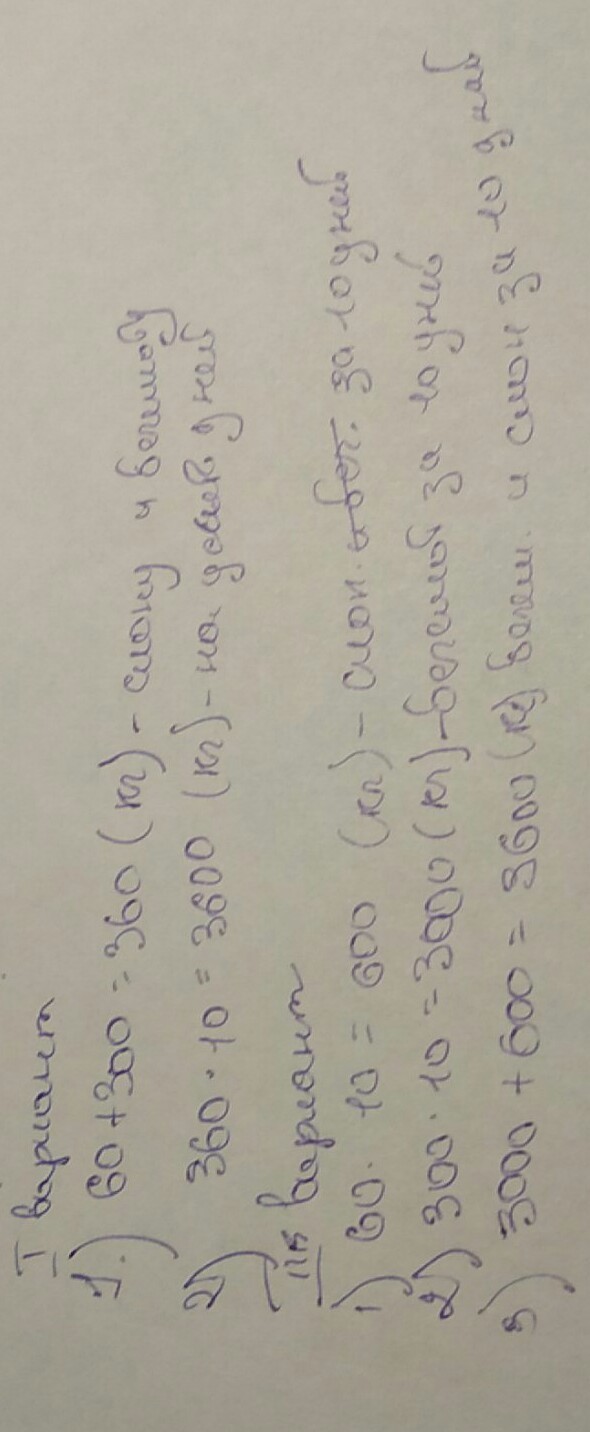 I вариант
1.) 60+300 = 360 (кг) - слону и бегемоту
2) 360 · 10 = 3600 (кг) - на 10 дней
II вариант
1) 60 · 10 = 600 (кг) - слон. за 10 дней
2) 300 · 10 = 3000 (кг) - бегемот за 10 дней
3) 3000 + 600 = 3600 (кг) бегем. и слон за 10 дней